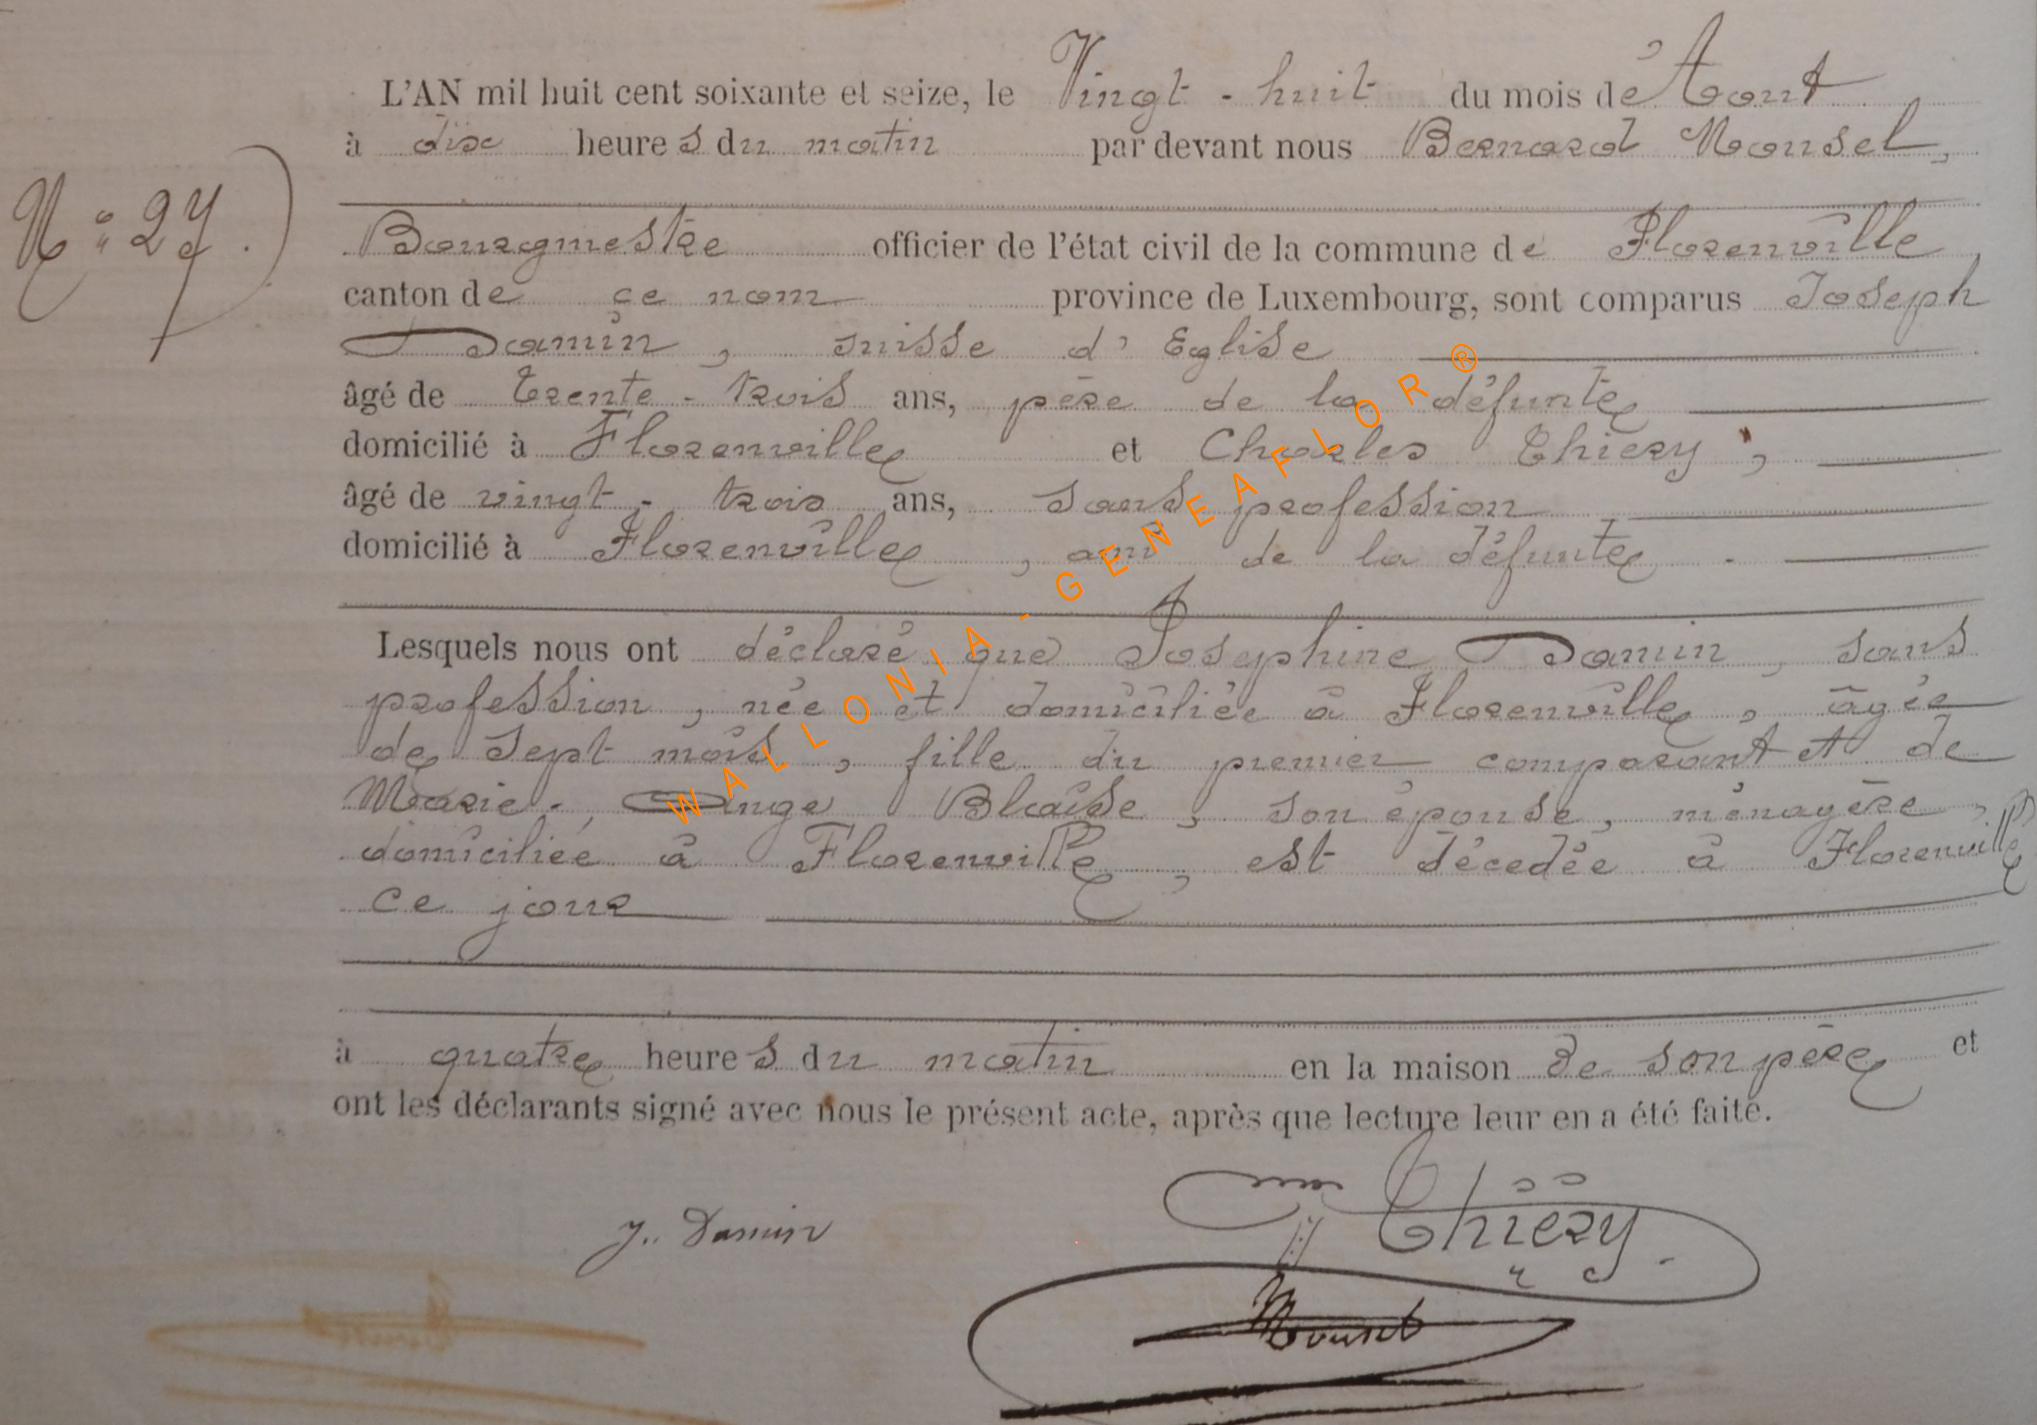 L'AN mil huit cent soixante et seize, le Vingt-huit du mois de Aout
à dix heures du matin par devant nous Bernard Mousel,
N° 27.)
Bourgmestre officier de l'état civil de la commune de Florenville
canton de ce nom province de Luxembourg, sont comparus Joseph
Damin, suisse d'Eglise
âgé de trente-trois ans, père de la défunte
domicilié à Florenville et Charles Thiery,
âgé de vingt-trois ans, sans profession
domicilié à Florenville, ami de la défunte.
Lesquels nous ont déclaré que Josephine Damin, sans
profession, née et domiciliée à Florenville, âgée
de sept mois, fille du premier comparant et de
Marie-Ange Blaise, son épouse, ménagère,
domiciliée à Florenville, est décedée à Florenville
ce jour
à quatre heures du matin en la maison de son père et
ont les déclarants signé avec nous le présent acte, après que lecture leur en a été faite.
J. Damin
Thiéry
Mousel
WALLONIA - GENEAFLOR ®